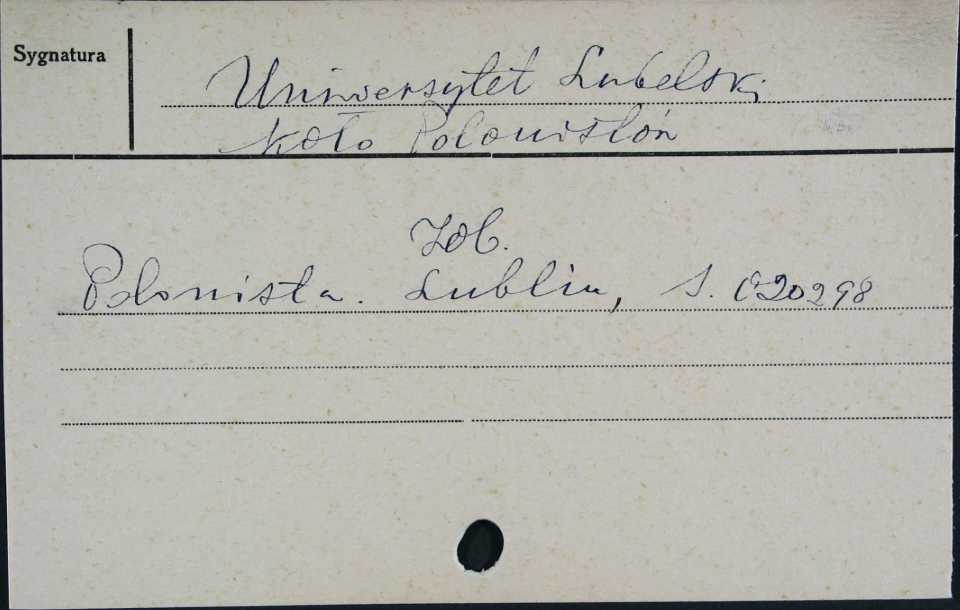 Sygnatura
Uniwersytet Lubelski
Koło Polonistów
Zob.
Polonista. Lublin, S. C20298